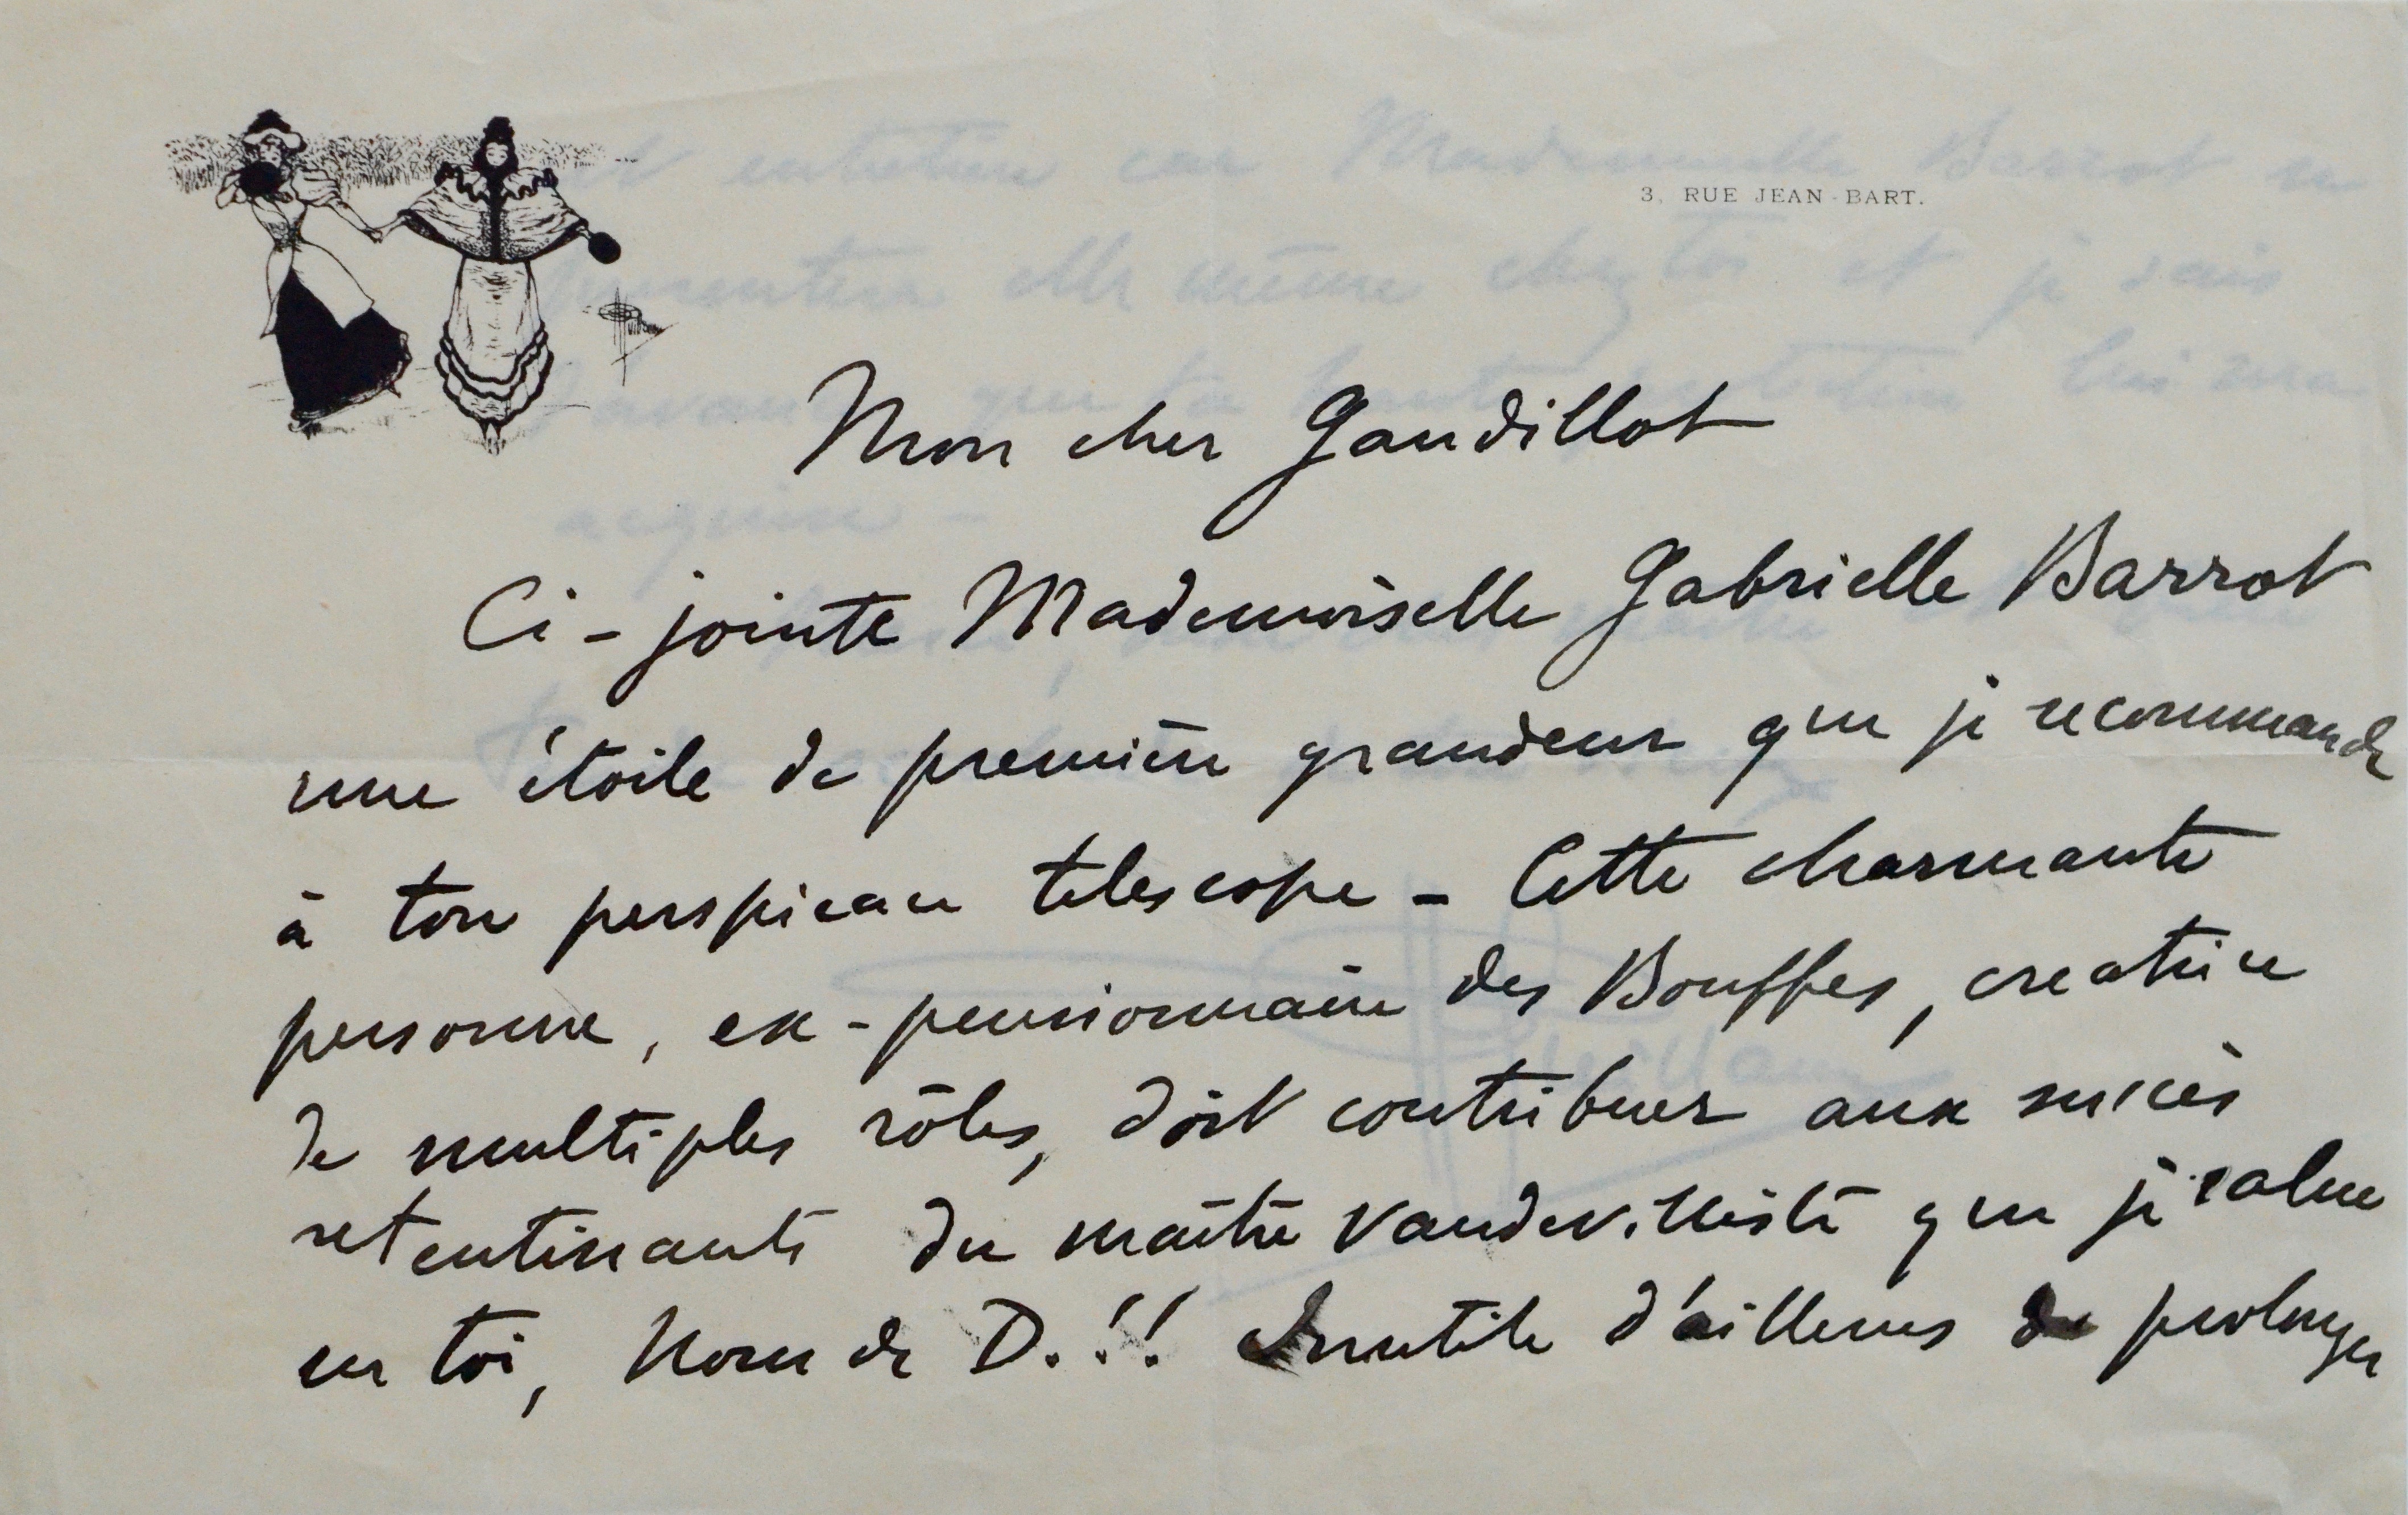 3, RUE JEAN-BART.
Mon cher Gandillot
Ci-jointe Mademoiselle Gabrielle Barrot
une étoile de première grandeur que je recommande
à ton perspicace telescope - Cette charmante
personne, ex-pensionnaire des Bouffes, creatrice
de multiples rôles, doit contribuer aux succès
retentissants du maître vaudevilliste que je salue
en toi, Nom de D.!! Inutile d'ailleurs de prolonger